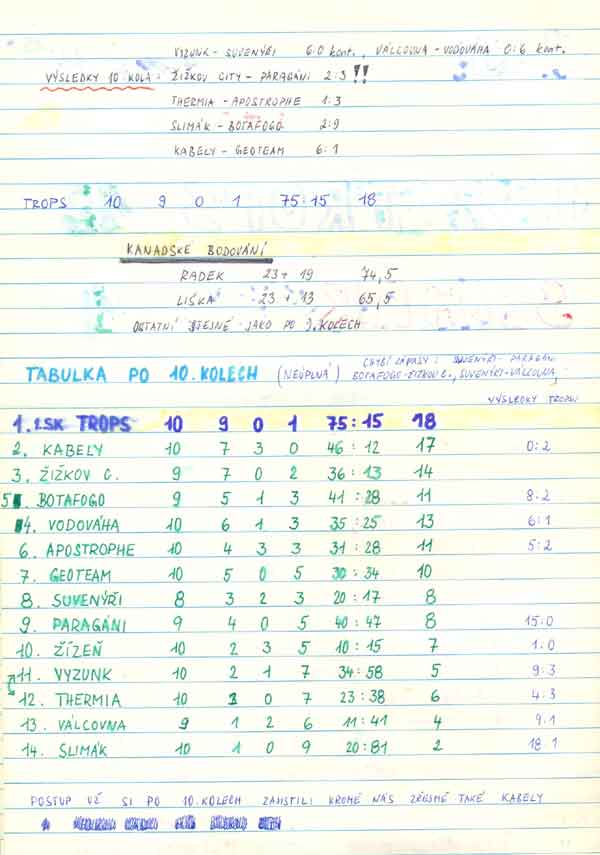 VYZUNK - SUVENÝŘI 6:0 kont., VÁLCOVNA - VODOVÁHA 0:6 kont.
VÝSLEDKY 10 KOLA: ŽIŽKOV CITY - PARAGÁNI 2:3!!
THERMIA - APOSTROPHE 1:3
SLIMÁK - BOTAFOGO 2:9
KABELY - GEOTEAM 6:1
TROPS 10 9 0 1 75:15 18
KANADSKÉ BODOVÁNÍ
RADEK 23+19 74,5
LIŠKA 23+13 65,5
OSTATNÍ STEJNÉ JAKO PO 9. KOLECH
TABULKA PO 10. KOLECH (NEÚPLNÁ) CHYBÍ ZÁPASY: SUVENÝŘI - PARAGÁNI
BOTAFOGO-ŽIŽKOV C., SUVENÝŘI-VÁLCOVNA
VÝSLEDKY TROPSU
1. 1.SK TROPS 10 9 0 1 75:15 18
2. KABELY 10 7 3 0 46:12 17 0:2
3. ŽIŽKOV C. 9 7 0 2 36:13 14
5. BOTAFOGO 9 5 1 3 41:28 11 8:2
4. VODOVÁHA 10 6 1 3 35:25 13 6:1
6. APOSTROPHE 10 4 3 3 31:28 11 5:2
7. GEOTEAM 10 5 0 5 30:34 10
8. SUVENÝŘI 8 3 2 3 20:17 8
9. PARAGÁNI 9 4 0 5 40:47 8 15:0
10. ŽÍZEŇ 10 2 3 5 10:15 7 1:0
11. VYZUNK 10 2 1 7 34:58 5 9:3
12. THERMIA 10 3 0 7 23:38 6 4:3
13. VÁLCOVNA 9 1 2 6 11:41 4 9:1
14. SLIMÁK 10 1 0 9 20:81 2 18:1
POSTUP UŽ SI PO 10. KOLECH ZAJISTILI KROMĚ NÁS ZŘEJMĚ TAKÉ KABELY